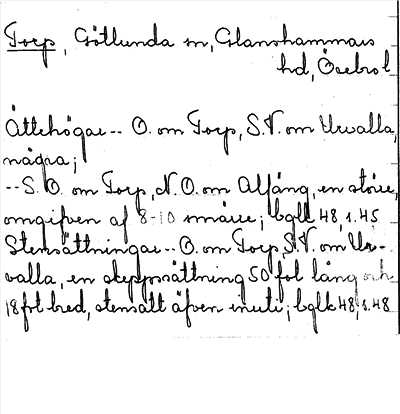 Torp, Götlunda sn, Glanshammars
hd, Örebro l
Ättehögar -- O. om Torp, S.V. om Urvalla,
några;
-- S.O. om Torp, N.O. om Alfäng, en större,
omgifven af 8-10 smärre; bglk 48, s. 45
Stensättningar -- O. om Torp, S.V. om Ur-
valla, en skeppssättning 50 fot lång och
18 fot bred, stensatt äfven inuti; bglk 48, s. 48